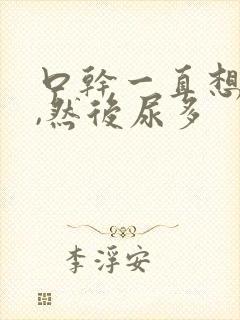 口幹一直想
,然後尿多
李浮安